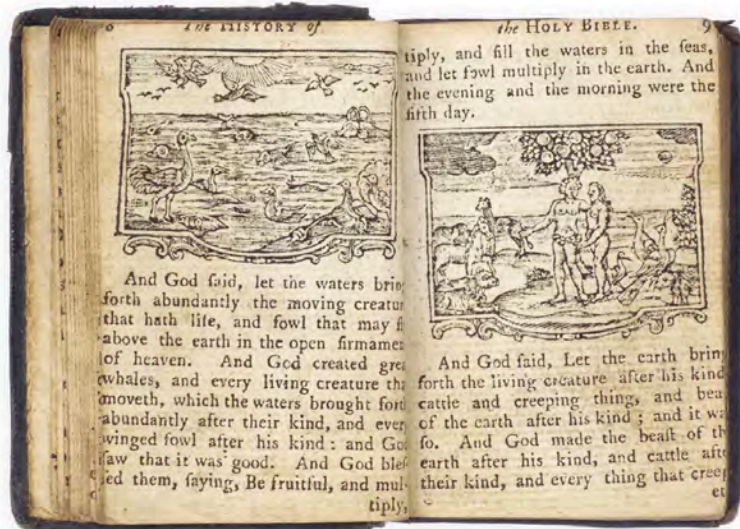 The HISTORY of
And God ſaid, let the waters brin
forth abundantly the moving creatur
that hath life, and fowl that may fl
above the earth in the open firmamen
of heaven. And God created grea
whales, and every living creature tha
moveth, which the waters brought fort
abundantly after their kind, and ever
winged fowl after his kind : and God
ſaw that it was good. And God bleſ
ſed them, ſaying, Be fruitful, and mul-
tiply,
the HOLY BIBLE. 9
tiply, and fill the waters in the ſeas,
and let fowl multiply in the earth. And
the evening and the morning were the
fifth day.
And God ſaid, Let the earth bring
forth the living creature after his kind
cattle and creeping thing, and beaſ
of the earth after his kind ; and it wa
ſo. And God made the beaſt of th
earth after his kind, and cattle afte
their kind, and every thing that creep
et